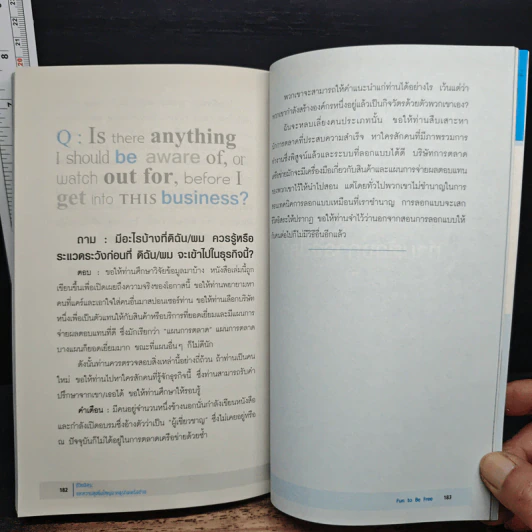 Q : Is there anything
i should be aware of, or
watch out for, before I
get into THIS business?
ถาม : มีอะไรบ้างที่ดิฉัน/ผม ควรรู้หรือ
ระแวดระวังก่อนที่ ดิฉัน/ผม จะเข้าไปในธุรกิจนี้?
ตอบ : ขอให้ท่านศึกษาวิจัยข้อมูลมาบ้าง หนังสือเล่มนี้ถูก
เขียนขึ้นเพื่อเปิดเผยถึงความจริงของโอกาสนี้ ขอให้ท่านพยายามหา
คนที่แคร์และเอาใจใส่คนอื่นมาสปอนเซอร์ท่าน ขอให้ท่านเลือกบริษัท
หนึ่งเพื่อเป็นตัวแทนให้กับสินค้าหรือบริการที่ยอดเยี่ยมและมีแผนการ
จ่ายผลตอบแทนที่ดี ซึ่งมักเรียกว่า "แผนการตลาด" แผนการตลาด
บางแผนก็ยอดเยี่ยมมาก ขณะที่แผนอื่นๆ ก็ไม่ดีนัก
ดังนั้นท่านควรตรวจสอบสิ่งเหล่านี้อย่างถี่ถ้วน ถ้าท่านเป็นคน
ใหม่ ขอให้ท่านไปหาใครสักคนที่รู้จักธุรกิจนี้ ซึ่งท่านสามารถรับคำ
ปรึกษาจากเขา/เธอได้ ขอให้ท่านศึกษาให้รอบรู้
คำเตือน : มีคนอยู่จำนวนหนึ่งข้างนอกนั่นกำลังเขียนหนังสือ
และกำลังเปิดอบรมซึ่งอ้างตัวว่าเป็น "ผู้เชี่ยวชาญ" ซึ่งไม่เคยอยู่หรือ
ณ ปัจจุบันก็ไม่ได้อยู่ในการตลาดเครือข่ายด้วยซ้ำ
182
พวกเขาจะสามารถให้คำแนะนำแก่ท่านได้อย่างไร เว้นแต่ว่า
พวกเขากำลังสร้างองค์กรหนึ่งอยู่แล้วเป็นกิจวัตรด้วยตัวพวกเขาเอง?
ฉันจะหลบเลี่ยงคนประเภทนั้น ขอให้ท่านสืบเสาะหา
นักการตลาดที่ประสบความสำเร็จ หาใครสักคนที่มีภาพรวมการ
ทำงานซึ่งพิสูจน์แล้วและระบบที่ลอกแบบได้ดี บริษัทการตลาด
เครือข่ายมักจะมีเครื่องมือเกี่ยวกับสินค้าและแผนการจ่ายผลตอบแทน
ของพวกเขาไว้ให้นำไปสอน แต่โดยทั่วไปพวกเขาไม่ชำนาญในการ
สอนเทคนิคการลอกแบบเหมือนที่เราชำนาญ การลอกแบบจะเสก
อิสรภาพให้ปรากฏ ขอให้ท่านจำไว้ว่านอกจากสอนการลอกแบบให้
กับคนต่อไปก็ไม่มีวิธีอื่นอีกแล้ว
Fun to Be Free 183